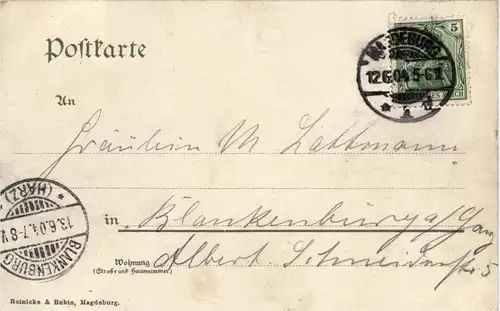 Postkarte
5
MAGDEBURG
12.6.04.5-6N
* 1 d
An
Fräulein M Lattmann
(HARZ)
13.6.04.7-8V.
BLANKENBURG
in Blankenburg a/Harz
Wohnung Albert Schneiderstr 5
(Straße und Hausnummer)
Reinicke & Rubin, Magdeburg.